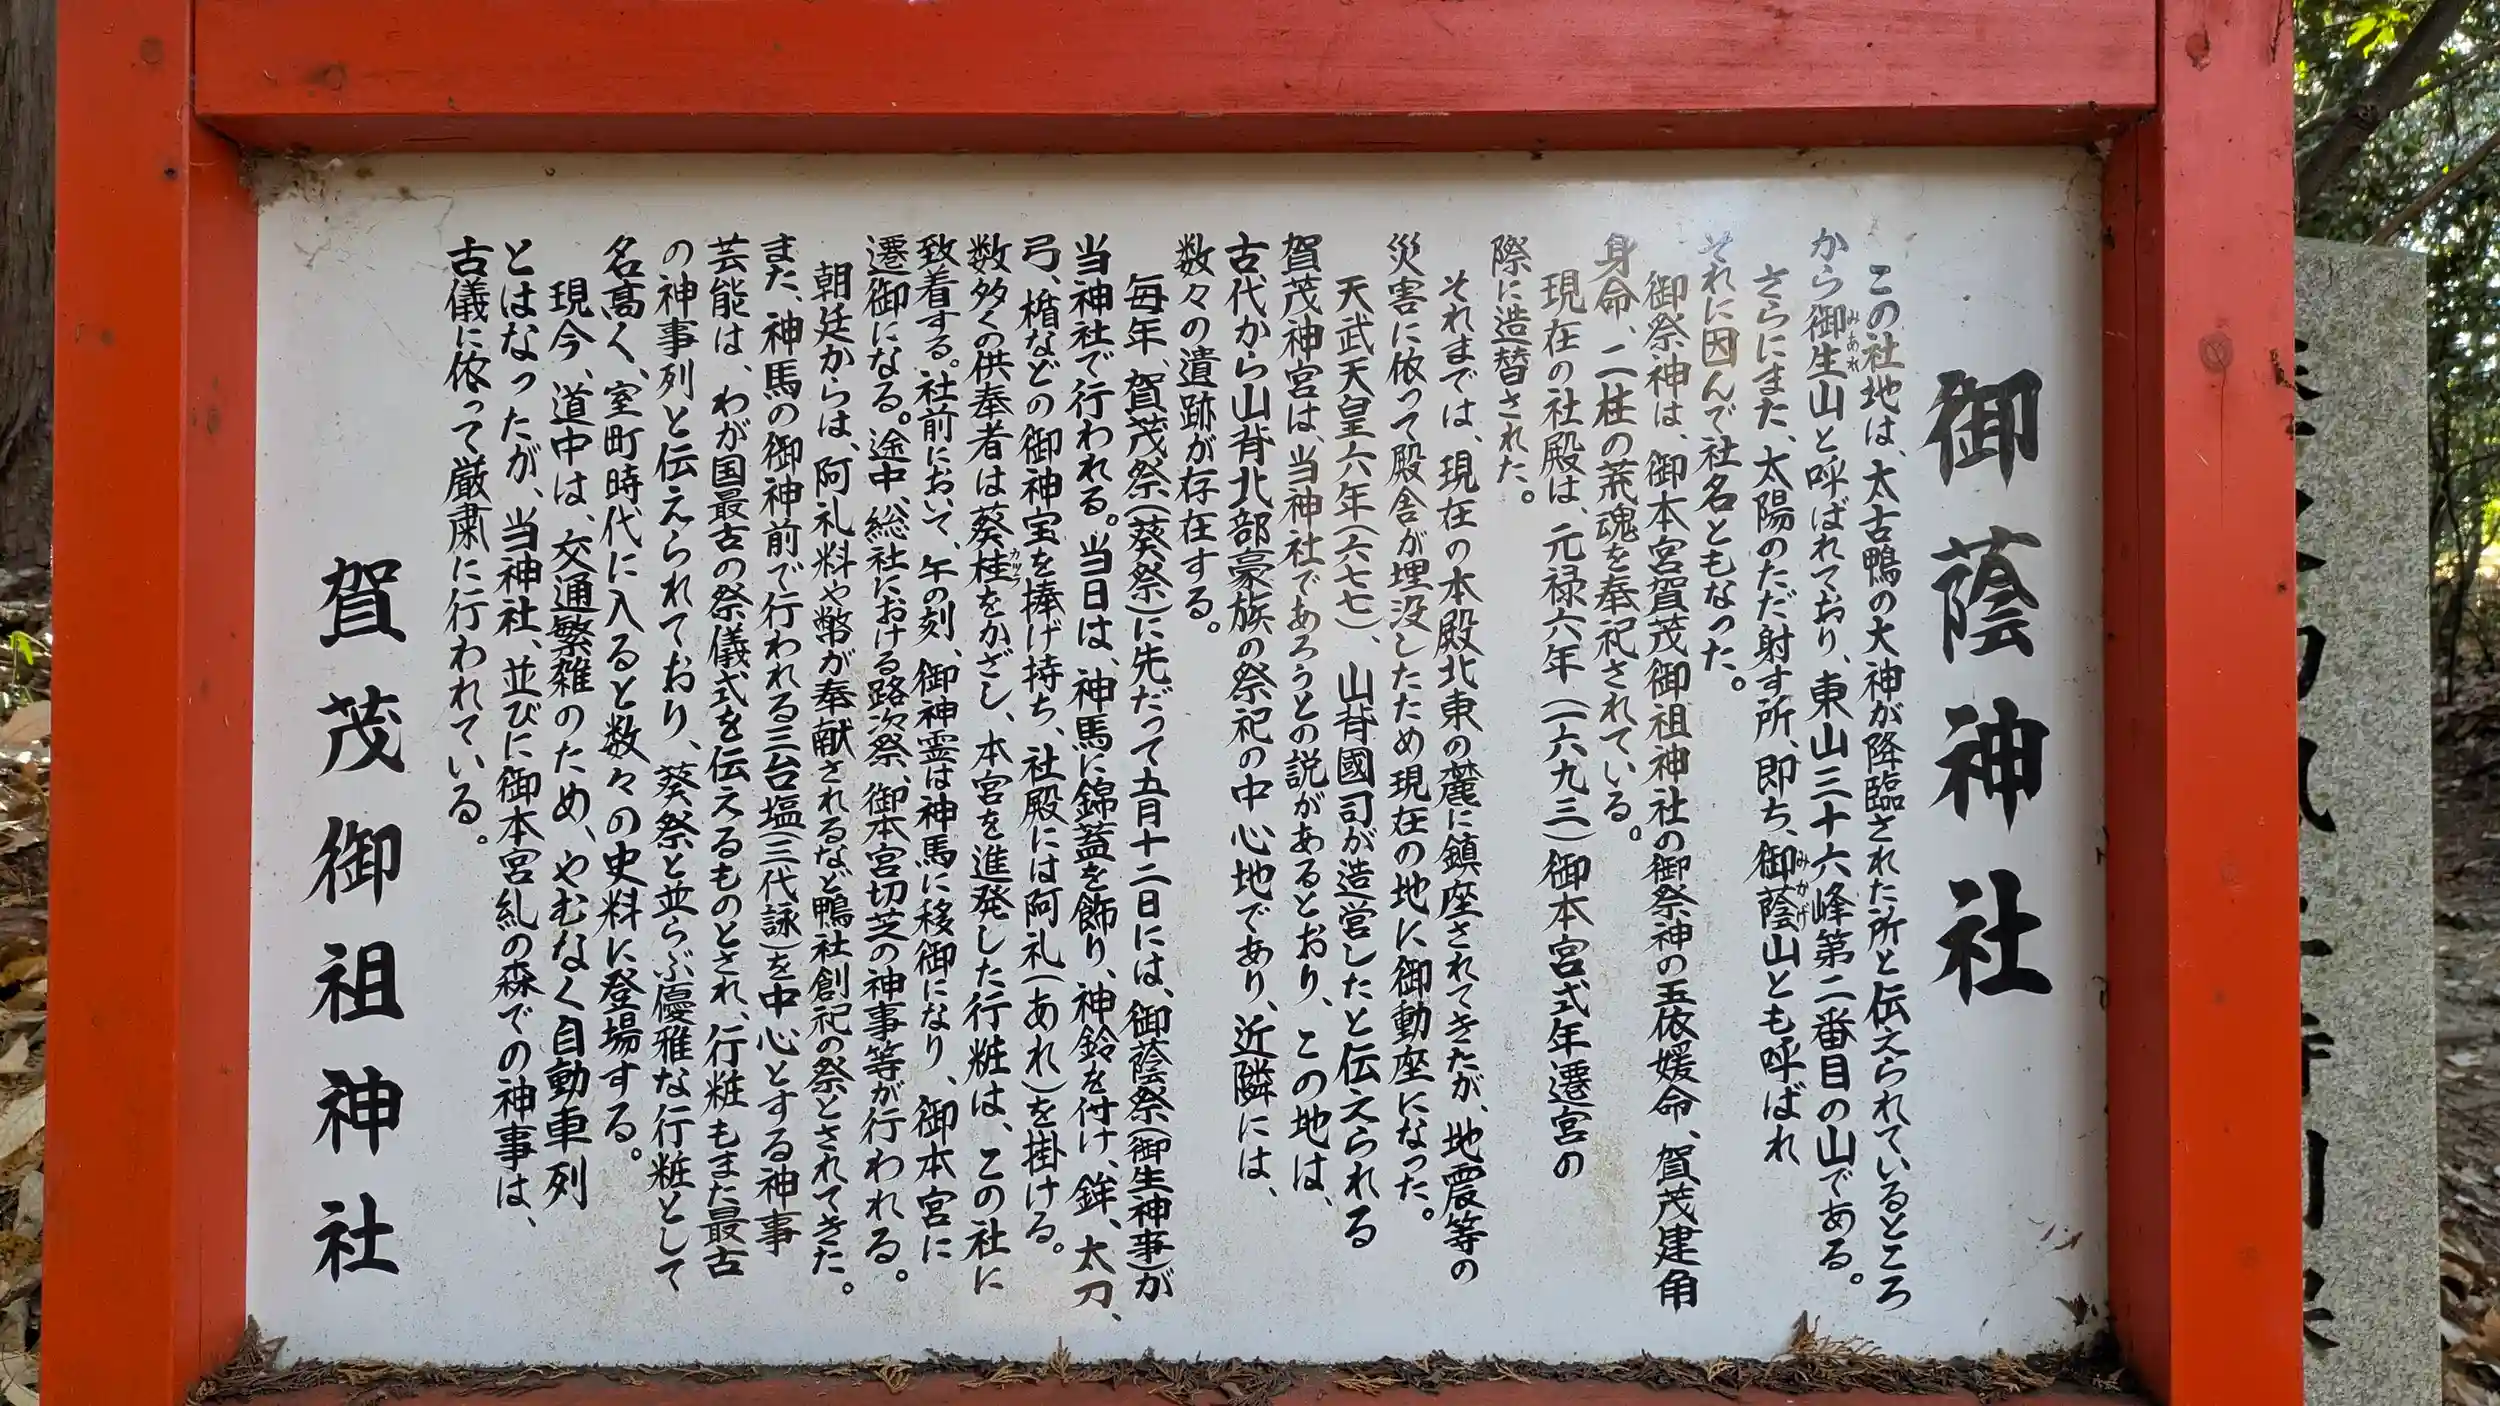 御蔭神社
この社地は、太古鴨の大神が降臨された所と伝えられているところ
から御生山と呼ばれており、東山三十六峰第二番目の山である。
みあれ
さらにまた、太陽のただ射す所、即ち、御蔭山とも呼ばれ
みかげ
それに因んで社名ともなった。
御祭神は、御本宮賀茂御祖神社の御祭神の玉依媛命、賀茂建角
身命、二柱の荒魂を奉祀されている。
現在の社殿は、元禄六年(一六九三)御本宮式年遷宮の
際に造替された。
それまでは、現在の本殿北東の麓に鎮座されてきたが、地震等の
災害に依って殿舎が埋没したため現在の地に御動座になった。
天武天皇六年(六七七)、山背國司が造営したと伝えられる
賀茂神宮は、当神社であろうとの説があるとおり、この地は、
古代から山背北部豪族の祭祀の中心地であり、近隣には、
数々の遺跡が存在する。
毎年、賀茂祭(葵祭)に先だって五月十二日には、御蔭祭(御生神事)が
当神社で行われる。当日は、神馬に錦蓋を飾り、神鈴を付け、鉾、太刀、
弓、楯などの御神宝を捧げ持ち、社殿には阿礼(あれ)を掛ける。
数多くの供奉者は葵桂をかざし、本宮を進発した行粧は、この社に
カツラ
致着する。社前において、午の刻、御神霊は神馬に移御になり、御本宮に
遷御になる。途中、総社における路次祭、御本宮切芝の神事等が行われる。
朝廷からは、阿礼料や幣が奉献されるなど鴨社創祀の祭とされてきた。
また、神馬の御神前で行われる三台塩(三代詠)を中心とする神事
芸能は、わが国最古の祭儀式を伝えるものとされ、行粧もまた最古
の神事列と伝えられており、葵祭と並らぶ優雅な行粧として
名高く、室町時代に入ると数々の史料に登場する。
現今、道中は、交通繁雑のため、やむなく自動車列
とはなったが、当神社、並びに御本宮糺の森での神事は、
古儀に依って厳粛に行われている。
賀茂御祖神社